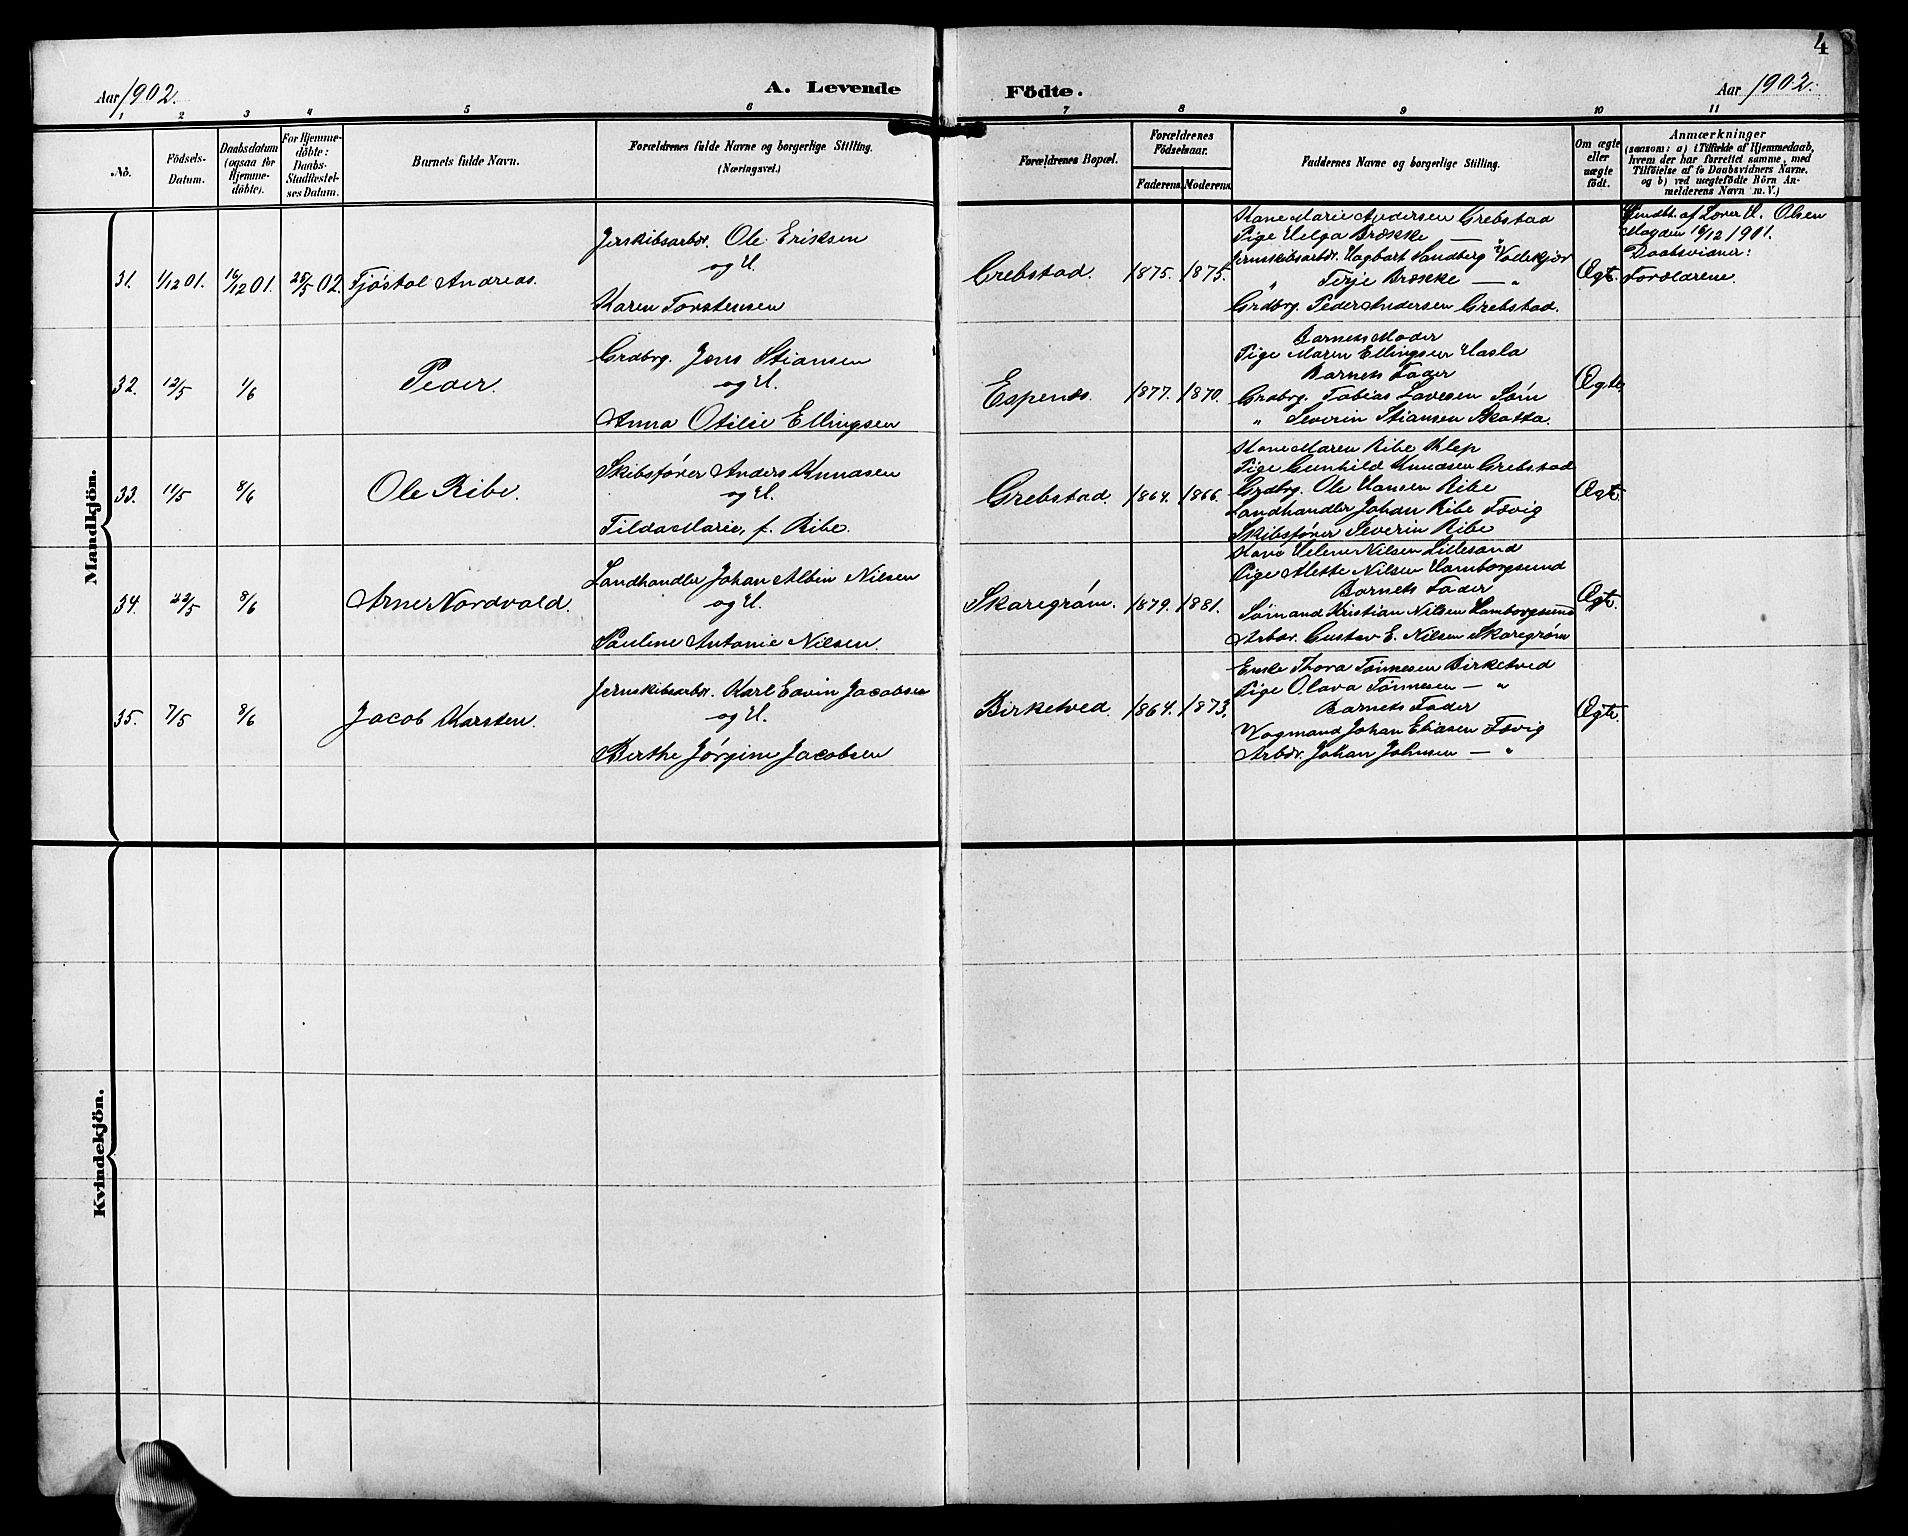 4
Aar 1902.
A. Levende
Födte.
Aar 1902.
1 2 3 4 5 6 7 8 9 10 11
No.
Födsels-
Datum.
Daabsdatum
(ogsaa for
Hjemme-
döbte).
For Hjemme-
döbte:
Daabs-
Stadfæstel-
ses Datum.
Barnets fulde Navn.
Forældrenes fulde Navne og borgerlige Stilling.
(Næringsvei.)
Forældrenes Bopæl.
Forældrenes
Födselsaar.
Faderens. Moderens.
Faddernes Navne og borgerlige Stilling.
Om ægte
eller
uægte
födt.
Anmærkninger
(saasom: a) i Tilfælde af Hjemmedaab,
hvem der har forrettet samme, med
Tilföielse af to Daabsvidners Navne,
og b) ved uægtefödte Börn An-
melderens Navn m. V.)
Mandkjön.
31. 1/12 01. 16/12 01. 25/5 02. Tjöstol Andreas.
Jerskibsarbdr. Ole Eriksen
og H.
Karen Torstensen
Grebstad. 1875. 1875.
Kone Marie Andersen Grebstad
Pige Helga Brække
Jernskibsarbdr. Hagbart Sandberg Vedekjær
" Terje Brække — "
Grdbrg. Peder Andersen Grebstad.
Ægte.
Hmdbt. af Lærer H. Olsen
16/12 1901.
Daabsvidner:
Forældrene
32. 12/5 1/6 Peder.
Grdbrg. Jens Stiansen
og H.
Anna Otilie Ellingsen
Espenes. 1877. 1870.
Barnets Moder
Pige Maren Ellingsen Hasla
Barnets Fader
Grdbrg. Tobias Lovesen Søm
" Severin Stiansen Skotta.
Ægte.
33. 11/5 8/6 Ole Ribe.
Skibsfører Anders Knudsen
og H.
Tilda Marie, f. Ribe.
Grebstad 1864. 1866.
Kone Maren Ribe Klep
Pige Gunhild Knudsen Grebstad
Grdbrg. Ole Hansen Ribe
Landhandler Johan Ribe Fævig
Skibsfører Severin Ribe
Ægte.
34. 22/5 8/6 Arne Nordvald.
Landhandler Johan Albin Nilsen
og H.
Pauline Antonie Nilsen.
Skaregrøm. 1879. 1881.
Kone Helene Nilsen Lillesand
Pige Alette Nilsen Hamborgsund
Barnets Fader
Sømand Kristian Nilsen Hamborgsund
Arbdr. Gustav E. Nilsen Skaregrøm
Ægte.
35. 7/5 8/6 Jacob Karsten.
Jernskibsarbdr. Karl Edvin Jacobsen
og H.
Berthe Jørgine Jacobsen
Birketved. 1864. 1873.
Enke Thora Tønnesen Birketved
Pige Olava Tønnesen — "
Barnets Fader
Vogmand Johan Eliasen Fævig
Arbdr. Johan Johnsen — "
Ægte.
Kvindekjön.